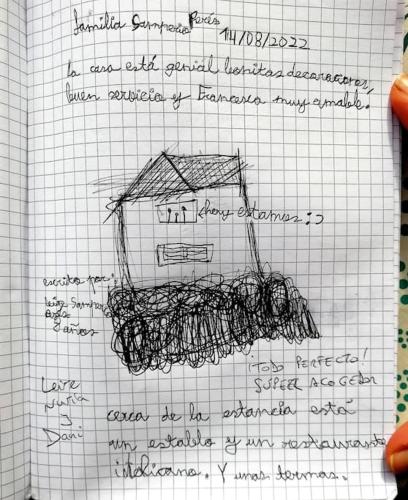 familia Samperio Perés
14/08/2022
la casa está genial bonitas decoraciones,
buen servicio y Francesca muy amable.
hoy estamos :)
escrito por:
leire Samperio
Perés
8 años
¡TODO PERFECTO!
SUPER ACOGEDOR
Leire
Nuria
y
Dani
cerca de la estancia está
un establo y un restaurante
italicano. Y unas termas.